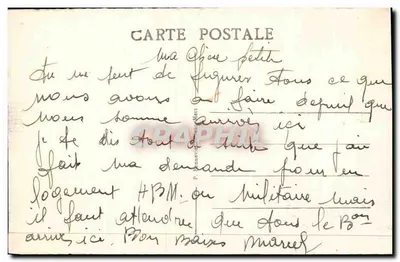 CARTE POSTALE
Ma Chère petite
Tu ne peut te figurer tous ce que
nous avons a faire depuis que
nous somme arrivés ici
je te dis tout de suite que j'ai
fait ma demande pour un
logement HBM ou Militaire mais
il faut attendre que tous le Bon
arrive ici. Bon Baises Marcel